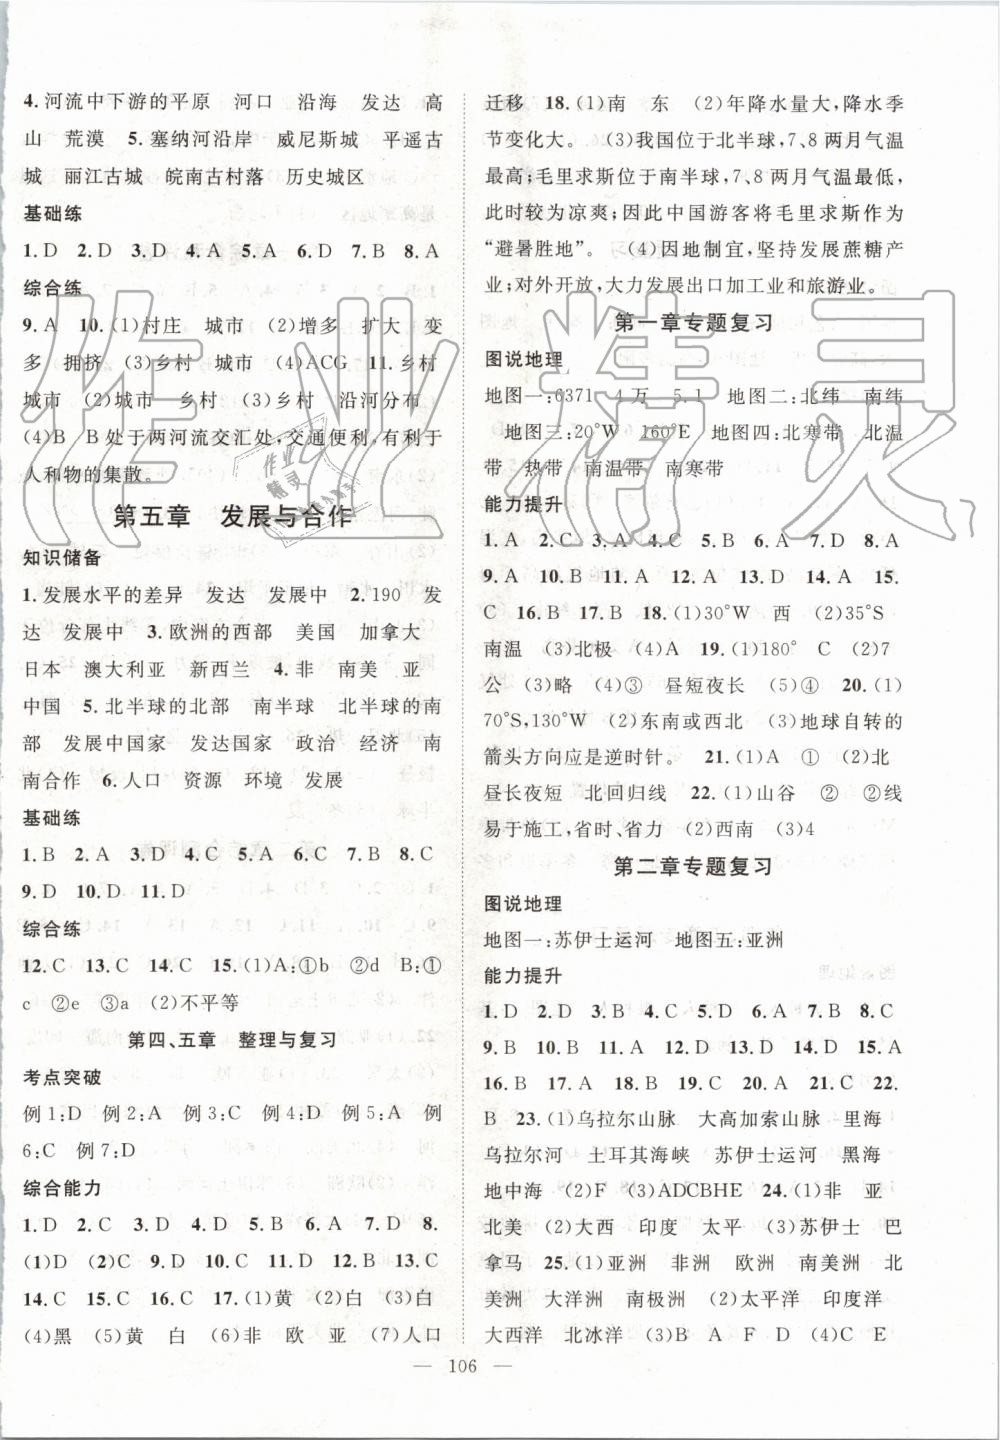 4.河流中下游的平原 河口 沿海 发达 高
山 荒漠 5.塞纳河沿岸 威尼斯城 平遥古
城 丽江古城 皖南古村落 历史城区
基础练
1.D 2.D 3.D 4.A 5.A 6.D 7.B 8.A
综合练
9.A 10.(1)村庄 城市 (2)增多 扩大 变
多 拥挤 (3)乡村 城市 (4)ACG 11.乡村
城市 (2)城市 乡村 (3)乡村 沿河分布
(4)B B处于两河流交汇处,交通便利,有利于
人和物的集散。
第五章 发展与合作
知识储备
1.发展水平的差异 发达 发展中 2.190 发
达 发展中 3.欧洲的西部 美国 加拿大
日本 澳大利亚 新西兰 4.非 南美 亚
中国 5.北半球的北部 南半球 北半球的南
部 发展中国家 发达国家 政治 经济 南
南合作 6.人口 资源 环境 发展
基础练
1.B 2.A 3.D 4.C 5.C 6.A 7.B 8.C
9.D 10.D 11.D
综合练
12.C 13.C 14.C 15.(1)A:①b ②d B:①
c ②e ③a (2)不平等
第四、五章 整理与复习
考点突破
例1:D 例2:A 例3:C 例4:D 例5:A 例
6:C 例7:D
综合能力
1.D 2.C 3.D 4.D 5.D 6.A 7.D 8.
(1)D (2)C 9.D 10.D 11.D 12.B 13.C
14.C 15.C 16.C 17.(1)黄 (2)白 (3)白
(4)黑 (5)黄 白 (6)非 欧 亚 (7)人口
迁移 18.(1)南 东 (2)年降水量大,降水季
节变化大。 (3)我国位于北半球,7、8两月气温
最高;毛里求斯位于南半球,7、8两月气温最低,
此时较为凉爽;因此中国游客将毛里求斯作为
“避暑胜地”。 (4)因地制宜,坚持发展蔗糖产
业;对外开放,大力发展出口加工业和旅游业。
第一章专题复习
图说地理
地图一:6371 4万 5.1 地图二:北纬 南纬
地图三:20°W 160°E 地图四:北寒带 北温
带 热带 南温带 南寒带
能力提升
1.A 2.C 3.C 4.C 5.B 6.A 7.D 8.A
9.A 10.A 11.B 12.B 13.D 14.A 15.
C 16.B 17.B 18.(1)30°W 西 (2)35°S
南温 (3)北极 (4)A 19.(1)180° C (2)7
公 (3)略 (4)③ 昼短夜长 (5)④ 20.(1)
70°S,130°W (2)东南或西北 (3)地球自转的
箭头方向应是逆时针。 21.(1)A ① (2)北
昼长夜短 北回归线 22.(1)山谷 ② ②线
易于施工,省时、省力 (2)西南 (3)4
第二章专题复习
图说地理
地图一:苏伊士运河 地图五:亚洲
能力提升
1.D 2.D 3.D 4.A 5.A 6.D 7.B 8.C
9.B 10.A 11.B 12.D 13.D 14.D 15.A
16.B 17.B 18.C 19.A 20.A 21.C 22.
B 23.(1)乌拉尔山脉 大高加索山脉 里海
乌拉尔河 土耳其海峡 苏伊士运河 黑海
地中海 (2)F (3)ADCBHE 24.(1)非 亚
北美 (2)大西 印度 太平 (3)苏伊士 巴
拿马 25.(1)亚洲 非洲 欧洲 南美洲 北
美洲 大洋洲 南极洲 (2)太平洋 印度洋
大西洋 北冰洋 (3)B A F D (4)C E
106
作业精灵